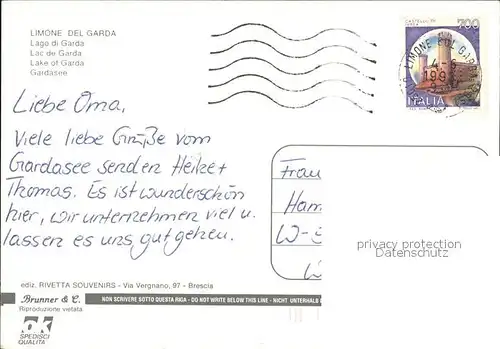 LIMONE DEL GARDA
Lago di Garda
Lac de Garda
Lake of Garda
Gardasee
700
ITALIA
LIMONE SUL GAR
4-6
199
Liebe Oma,
Viele liebe Grüße vom
Gardasee senden Heike +
Thomas. Es ist wunderschön
hier, wir unternehmen viel u.
lassen es uns gut gehen.
Frau
Ham
W-
privacy protection
Datenschutz
ediz. RIVETTA SOUVENIRS - Via Vergnano, 97 - Brescia
Brunner & C.
Riproduzione vietata
NON SCRIVERE SOTTO QUESTA RIGA - DO NOT WRITE BELOW THIS LINE - NICHT UNTERHALB
ok
SPEDISCI
QUALITÀ